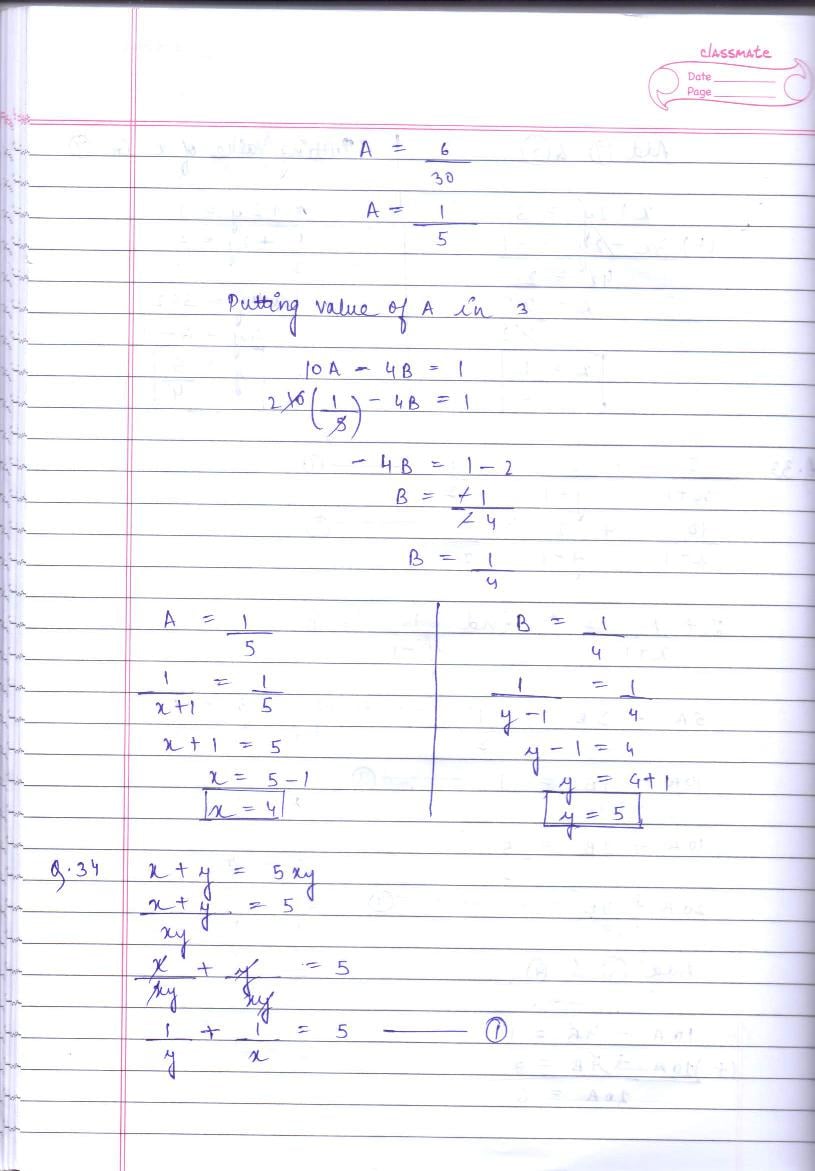 classmate
Date
Page
A = 6/30
A = 1/5
Putting value of A in 3
10A - 4B = 1
2 10 (1/5) - 4B = 1
- 4B = 1 - 2
B = -1/-4
B = 1/4
A = 1/5
1/x+1 = 1/5
x + 1 = 5
x = 5 - 1
x = 4
B = 1/4
1/y-1 = 1/4
y - 1 = 4
y = 4+1
y = 5
Q.34 x + y = 5xy
x + y/xy = 5
x/xy + y/xy = 5
1/y + 1/x = 5 —— ①